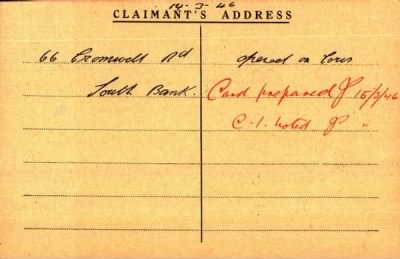 14-3-46
CLAIMANT'S ADDRESS
66 Cromwell Rd
South Bank.
opened on
Card prepared 15/3/46
C-1. noted "